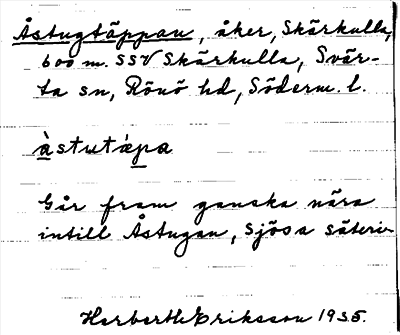 Åstugtäppan, åker, Skärkulla,
600 m. SSV Skärkulla, Svär-
ta sn, Rönö hd, Söderm. l.
àstutæ̀pa
Går fram ganska nära
intill Åstugan, Sjösa säteri
Herbert Eriksson 1935.